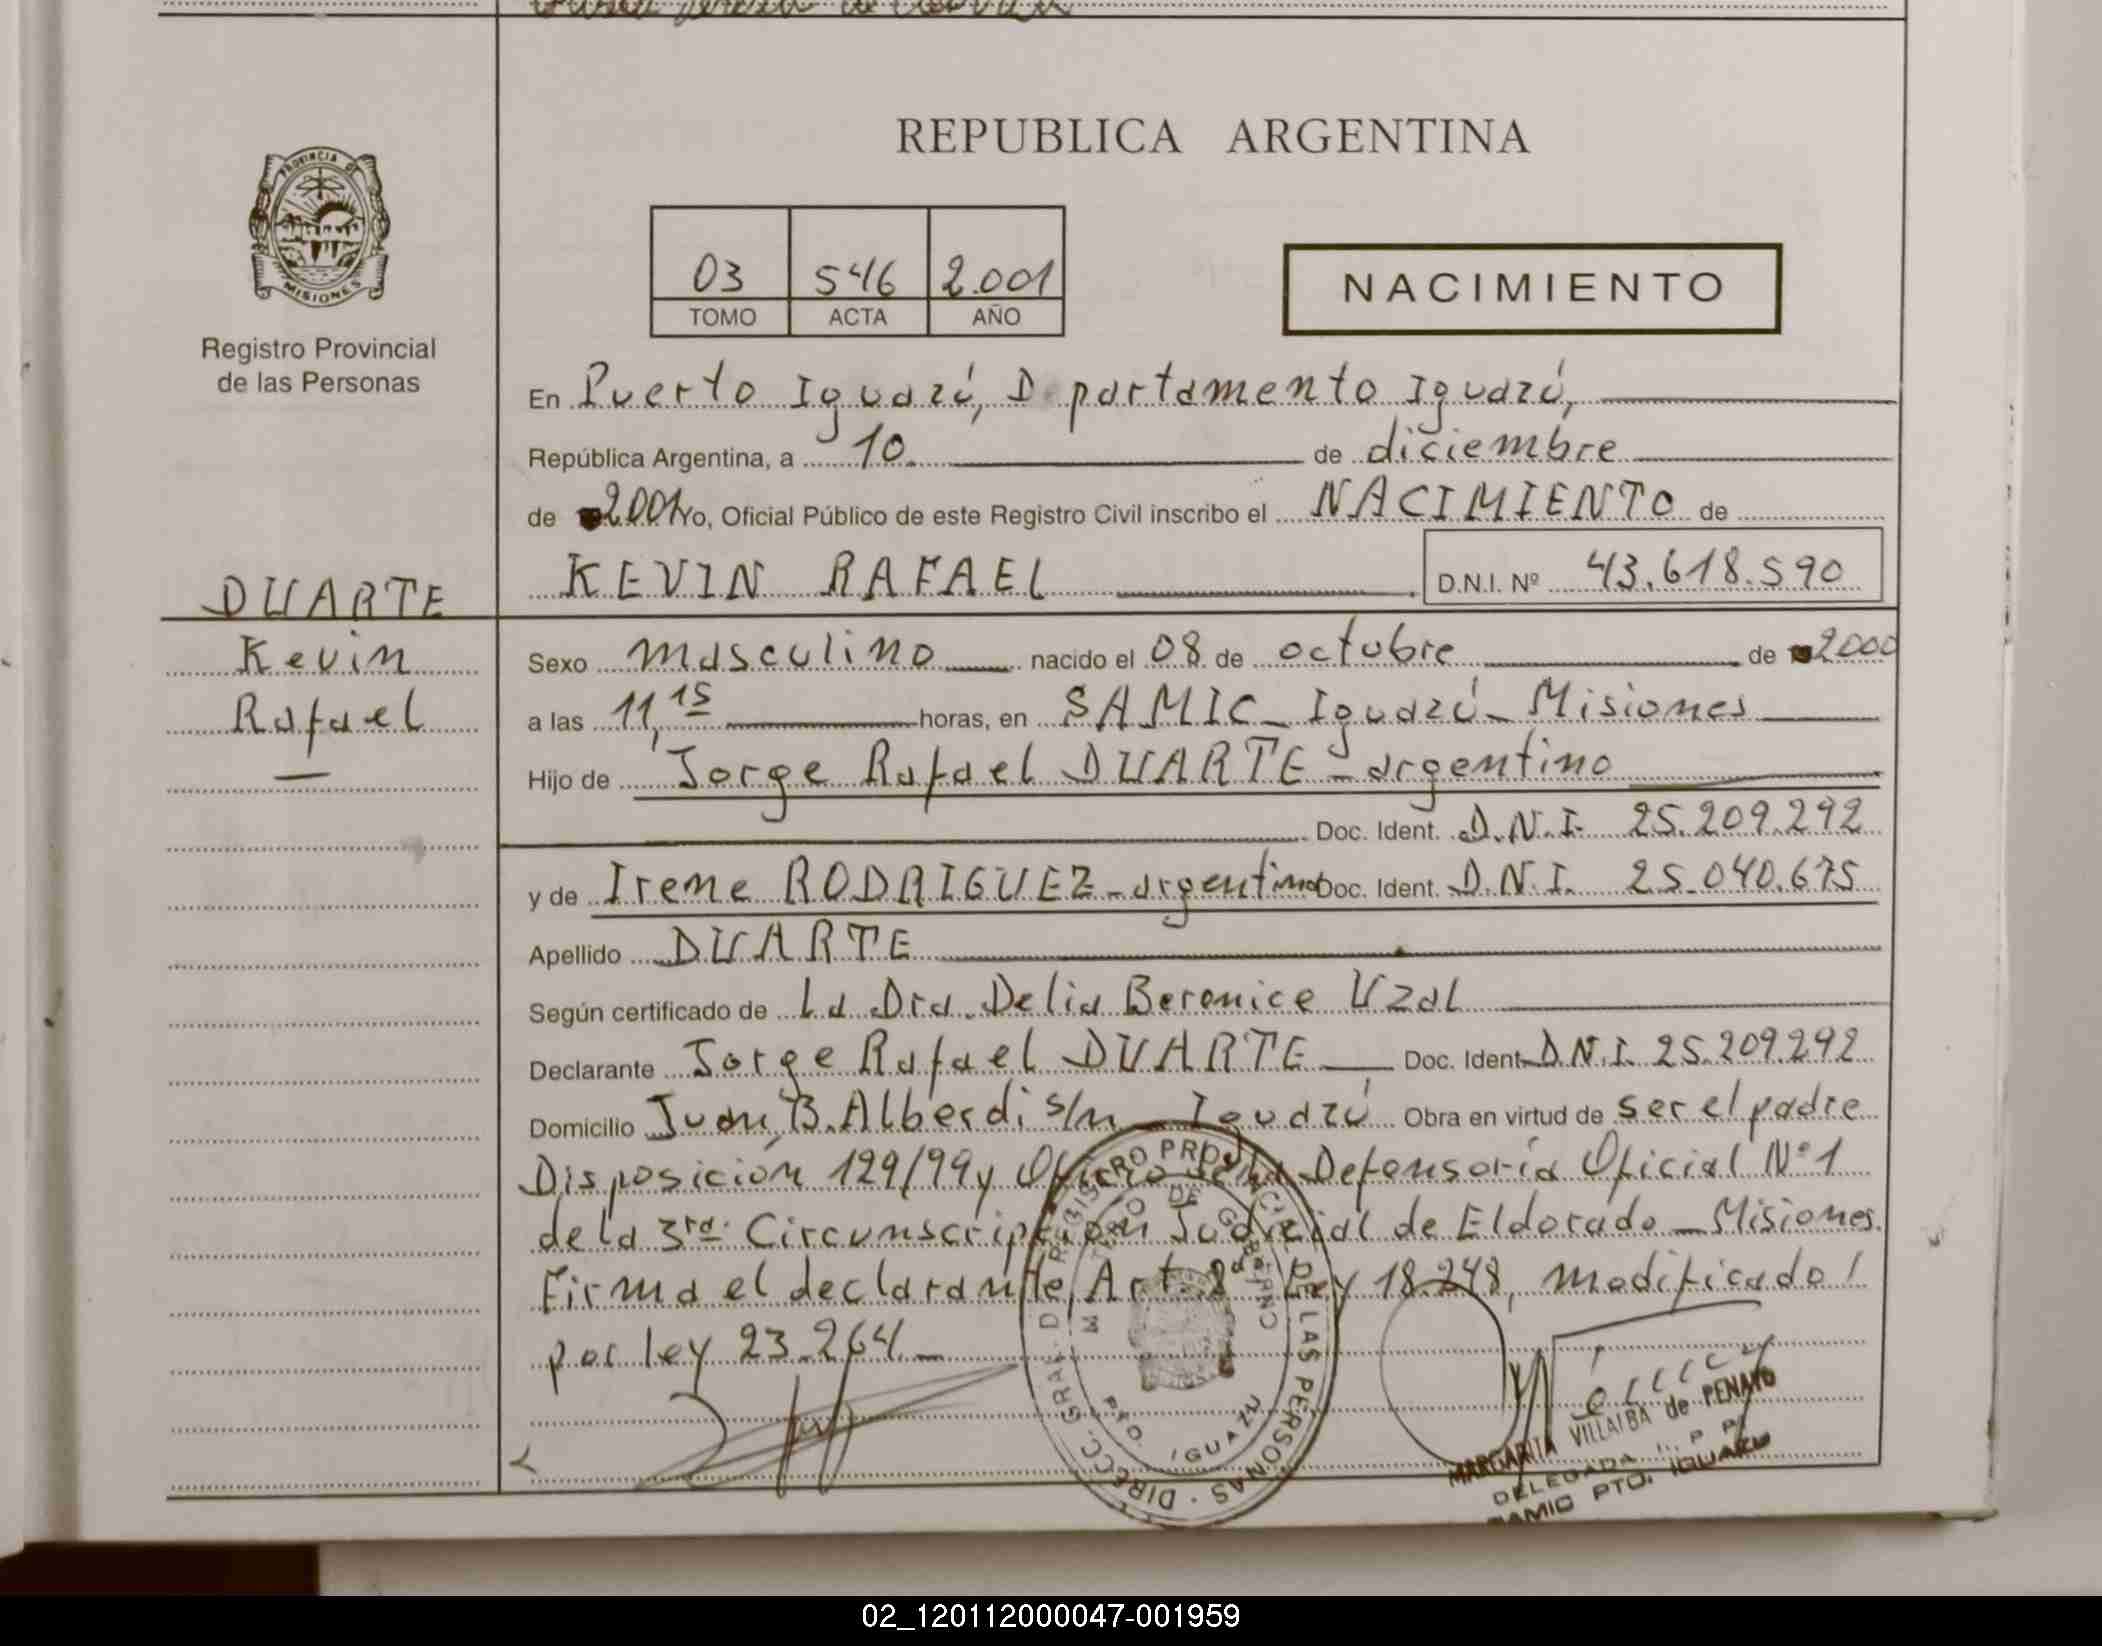 REPUBLICA ARGENTINA
PROVINCIA DE
MISIONES
Registro Provincial
de las Personas
03 546 2.001
TOMO ACTA AÑO
NACIMIENTO
En Puerto Iguazú, Departamento Iguazú,
República Argentina, a 10 de diciembre
de 2001 Yo, Oficial Público de este Registro Civil inscribo el NACIMIENTO de
KEVIN RAFAEL D.N.I. Nº 43.618.590
DUARTE
Kevin
Rafael
Sexo masculino nacido el 08 de octubre de 2000
a las 11,15 horas, en SAMIC - Iguazú - Misiones
Hijo de Jorge Rafael DUARTE - argentino
Doc. Ident. D.N.I. 25.209.292
y de Irene RODRIGUEZ - argentina Doc. Ident. D.N.I. 25.040.675
Apellido DUARTE
Según certificado de La Dra. Delia Berenice Uzal
Declarante Jorge Rafael DUARTE Doc. Ident. D.N.I. 25.209.292
Domicilio Juan B. Alberdi s/n - Iguazú Obra en virtud de ser el padre
Disposición 129/99 y Oficio de la Defensoría Oficial Nº 1
de la 3ra. Circunscripción Judicial de Eldorado - Misiones
Firma el declarante, Art. 8º Ley 18.248, modificado
por ley 23.264.-
DIRECC. GRAL. D. REGISTRO PROVINCIAL DE LAS PERSONAS
DE GOBIERNO
PTO. IGUAZU
MARGARITA VILLALBA de PENAYO
DELEGADA
SAMIC PTO. IGUAZU
02_120112000047-001959